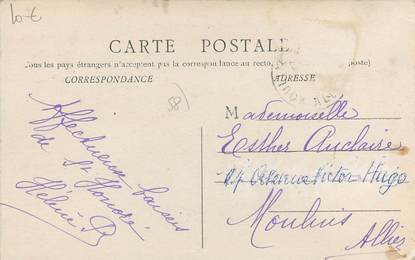 10 €
CARTE POSTALE
Tous les pays étrangers n'acceptent pas la correspondance au recto. poste)
CORRESPONDANCE
ADRESSE
58
Affectueux baisers
de St Honoré
Hélène
Mademoiselle
Esther Auclaire
Avenue Victor Hugo
Moulins
Allier